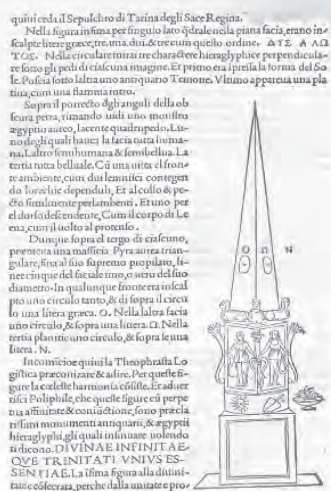 quiui ceda il Sepulchro di Tarina degli Sace Regina.
Nella figura infima per singulo lato q̃drale nella piana facia, erano in
scalpte litere græce, tre, una, due, & tre cum questo ordine. ΔΥΣ Α ΛΩ
ΤΟΣ. Nella circulare tutui tre charactere hieraglyphice perpendicula-
re sotto gli pedi di ciascuna imagine. Et primo era ipressa la forma del So
le. Poscia sotto laltra uno antiquario Temone. Vltimo appareua una pla
tina, cum una fiamma intro.
Sopra il porrecto degli anguli della ob
scura petra, rimando uidi uno monstro
ægyptio aureo, Iacente quadrupedo, L'u
no degli quali haueua la facia tutta huma-
na. Laltro semihumana & semibellua. La
tertia tutta belluale. Cũ una uitta el fron-
te ambiente, cum dui lemnisci contegen
do lorechie dependuli, Et al collo & pe-
cto similmente perlambenti. Et uno per
el dorso descendente, Cum il corpo di Le
æna, cum il uolto al protenso.
Dunque sopra il tergo di ciascuno,
premeua una massicia Pyra aurea trian-
gulare, fina al suo supremo propilato, li-
nee cinque del faciale imo, o uero del suo
diametro. In qualunque fronte era inscal
pto uno circulo tanto, & di sopra il circu
lo una litera græca. O. Nella laltra facia
uno circulo, & sopra una litera. Ω. Nella
tertia planitie uno circulo, & sopra le una
litera. N.
Incomincioe quiui la Theophrasta Lo
gistica præconizare & adire. Per queste fi-
gure la cæleste harmonia cõsiste. Et aduer
tisci Poliphile, che queste figure cũ perpe
tua affinitate & coniũctione, sono præcla
rissimi monumenti antiquarii, & ægyptii
hieraglyphi, gli quali insinuare uolendo
ti dicono. DIVINAE INFINITAE-
QVE TRINITATI VNIVS ES-
SENTIAE. La ifima figura alla diuini-
tate è cõsecrata, perche dalla unitate e pro-
O Ω N